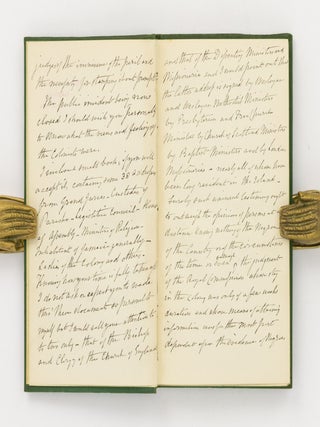 judge of the imminence of the peril and
the necessity for stopping it most promptly
The public mind has been so now
closed I should wish you personally
to know what the views and feelings of
the Colonists were.
I enclose a small book, if you will
accept it, containing some 38 addresses
from Grand Juries - Custodes of
Parishes - Legislative Council - House
of Assembly - Ministers of Religion -
Inhabitants of Jamaica generally -
Ladies of the Colony and others -
Knowing how your time is fully taken up
I do not ask or expect you to wade
thro' these documents so personal to
myself but I would call your attention to
to two only - that of the Bishop
and Clergy of the Church of England
and that of the Deputy Ministers and
Missionaries and I would point out that
the latter address is signed by Wesleyan
and Wesleyan Methodist Ministers
by Presbyterian and Free Church
Ministers by Church of Scotland Ministers
by Baptist Ministers and by London
Missionaries - nearly all of whom have
been long resident in the Island.
Surely such evidence is entitled
to outweigh the opinions of persons at a
distance knowing nothing of the Negroes
of the country or the circumstances
of the time or even the judgment
of the Royal Commissioners who only
in the Colony were only a few weeks
ourselves and whose means of obtaining
information was for the most part
dependent upon the evidence of Negroes